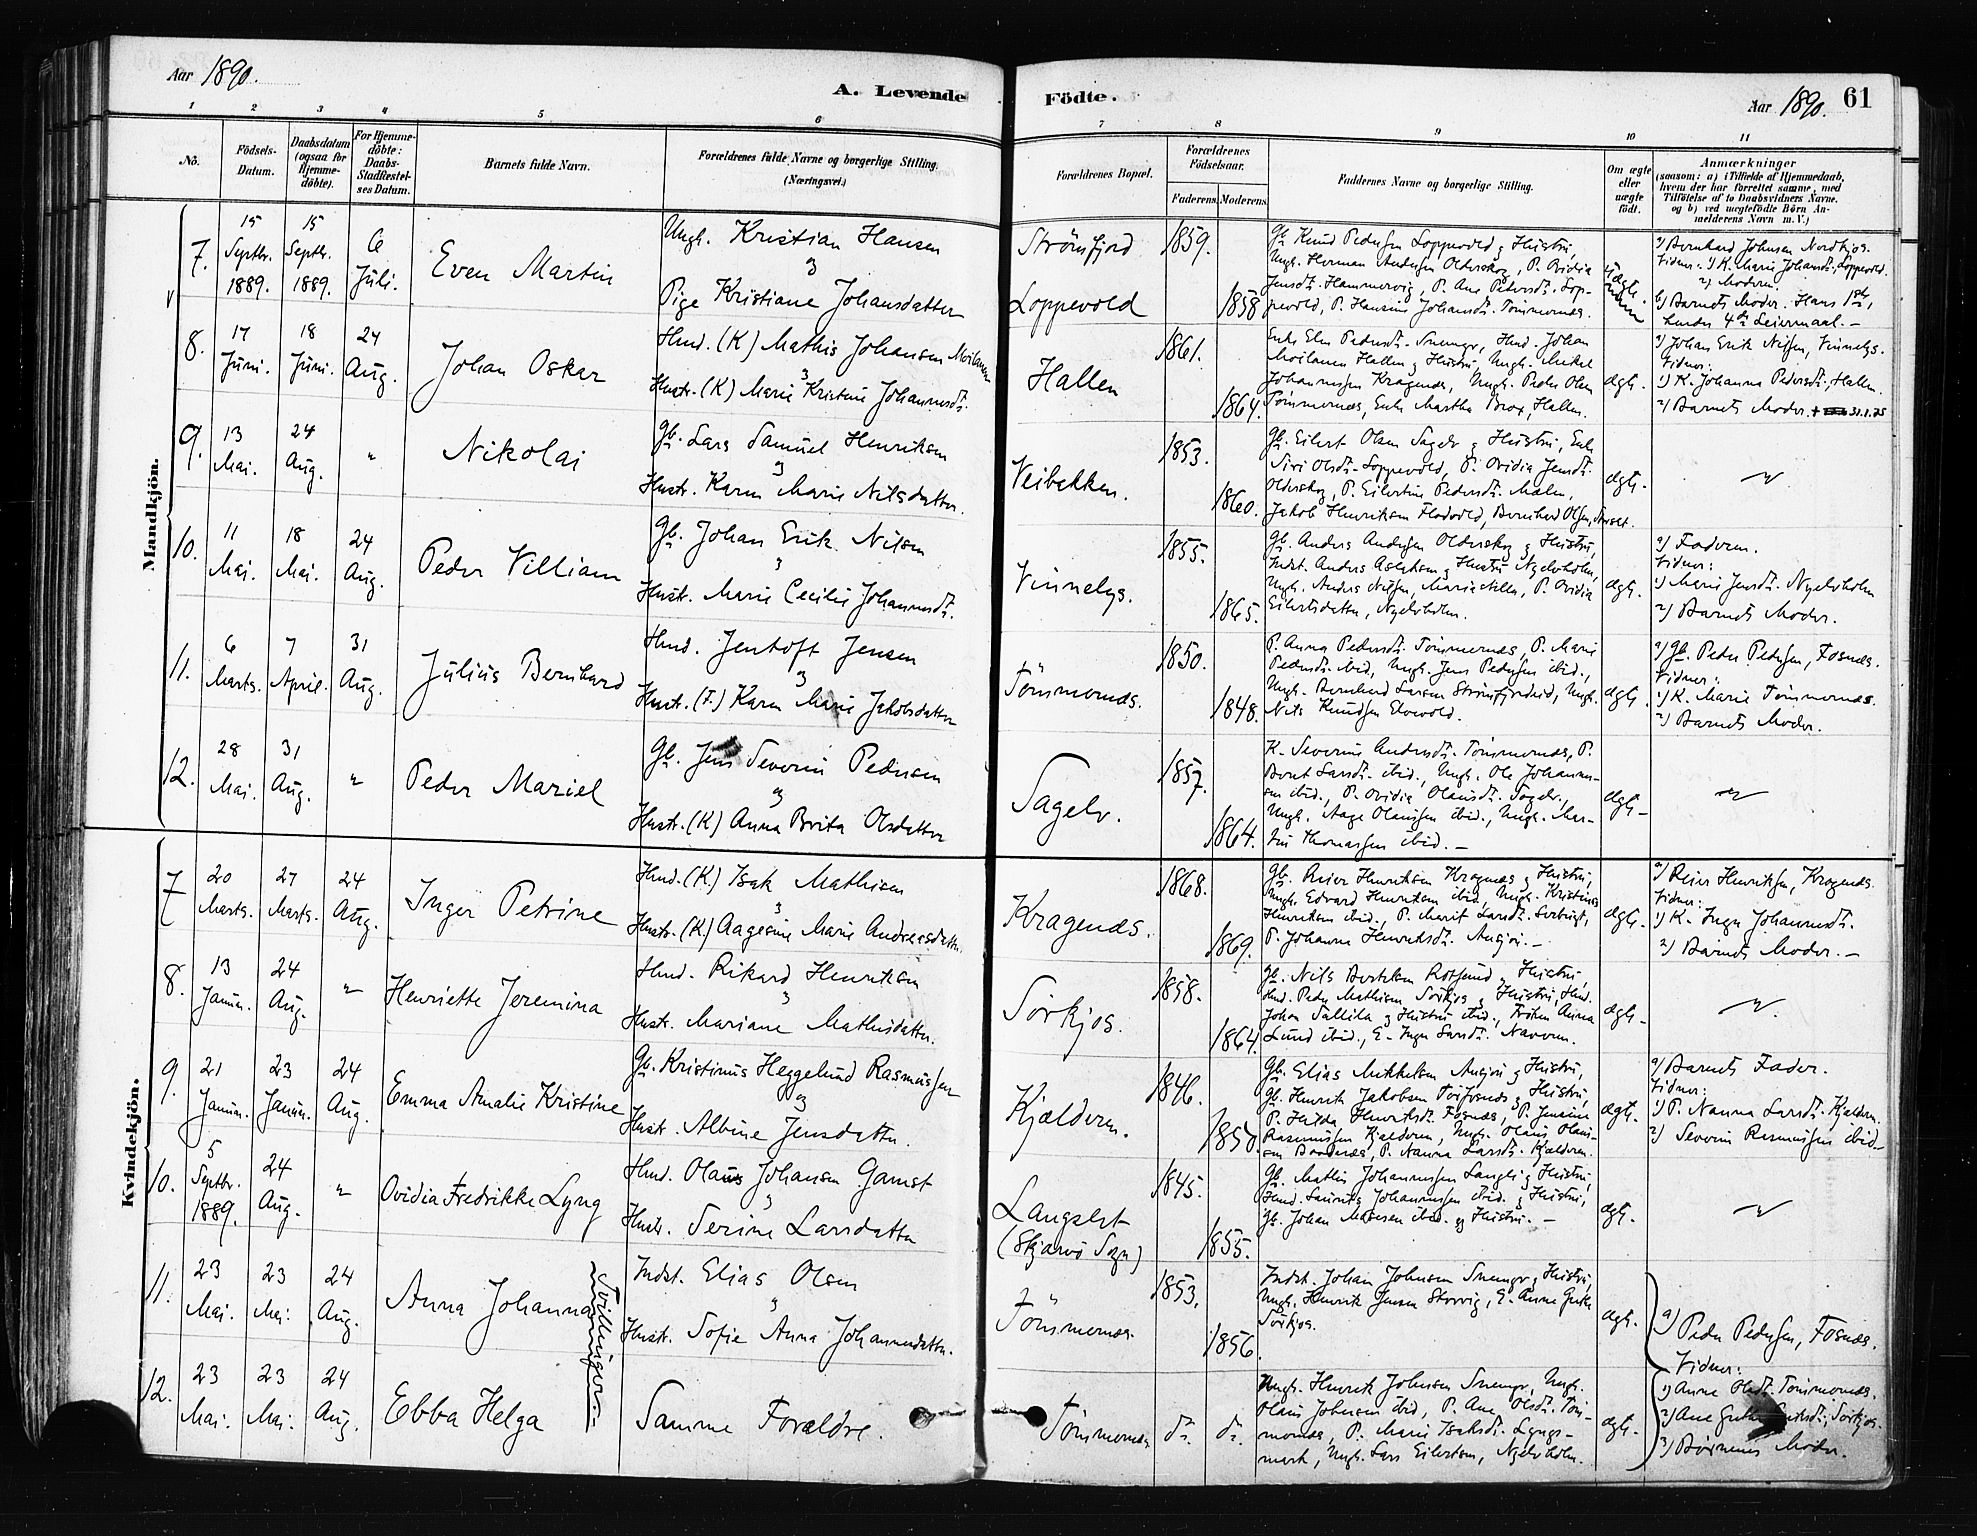 Aar 1890.
A. Levende Födte.
Aar 1890. 61
1 2 3 4 5 6 7 8 9 10 11
Nô.
Födsels-Datum.
Daabsdatum (ogsaa for Hjemme-döbte).
For Hjemme-döbte: Daabs-Stadfestel-ses Datum.
Barnets fulde Navn.
Forældrenes fulde Navne og borgerlige Stilling. (Næringsvei.)
Forældrenes Bopæl.
Forældrenes Födselsaar.
Faderens. Moderens.
Faddernes Navne og borgerlige Stilling.
Om ægte eller uægte födt.
Anmærkninger
(saasom: a) i Tilfælde af Hjemmedaab,
hvem der har forrettet samme, med
Tilföielse af to Daabsvidners Navne.
og b) ved uægtefödte Börn An-
melderens Navn m. V.)
Mandkjön.
7. 15 Septbr. 1889. 15 Septbr. 1889. 6 Juli. Even Martin
Ungk. Kristian Hansen
og
Pige Kristiane Johansdatter
Strömfjord
Loppevold
1859. 1858
Gb. Knud Pedersen Loppevold og Hustru,
Ungk. Herman Andersen Olderskog, P. Ovidia
Jensdt. Hammervig, P. Ane Petersdt. Lop-
pevold, P. Hansine Johansdt. Tömmernes.
a) Bernhard Johnsen Nordkjos.
Vidner: 1) K. Marie Johansdt., Loppevold.
2) Moderen.
b) Barnets Moder. Hans 1ste,
hendes 4de Leiermaal.-
8. 17 Juni. 18 Juni. 24 Aug. Johan Oskar
Hmd. (K) Mathis Johansen Moilanen
og
Hustr. (K) Marie Kristine Johannesdt.
Hallen
1861. 1864.
Enke Elen Pedersdt. Snemyr, Hmd. Johan
Moilanen Hallen og Hustru, Ungk. Mikel
Johannessen Kragenæs, Ungk. Peder Olsen
Tömmernæs, Enke Martha Brox, Hallen.
ægt.
a) Johan Erik Nilsen, Vinnelys.
Vidner:
1) K. Johanna Pedersdt., Hallen.
2) Barnets Moder. + 31.1.75
9. 13 Mai. 24 Aug. " Nikolai
Gb. Lars Samuel Henriksen
og
Hustr. Karen Marie Nilsdatter.
Veibakken.
1853. 1860.
Gb. Eilert Olsen Sagelv og Hustru, Enke
Siri Olsdt. Loppevold, P. Ovidia Jensdt.
Olderskog, P. Eilertine Pedersdt. Målen,
Jakob Henriksen Flodvold, Bernhard Olsen,
ægt.
10. 11 Mai. 18 Mai. 24 Aug. Peder Villiam
Gb. Johan Erik Nilsen
og
Hustr. Marie Cecilie Johannesdt.
Vinnelys.
1855. 1865.
Gb. Anders Andersen Olderskog og Hustru,
Indst. Anders Aslaksen og Hustru Nyelvholm,
Ungk. Anders Nilsen, Maria Nilsen, P. Ovidia
Eilertsdatter, Nyelvholm.
ægt.
a) Faderen.
Vidner:
1) Marie Jensdt. Nyelvholm
2) Barnets Moder.
11. 6 Marts. 7 April. 31 Aug. Julius Bernhard
Hmd. Jentoft Jensen
og
Hustr. (F.) Karen Marie Jakobsdatter
Tömmernæs.
1850. 1848.
P. Anna Pedersdt. Tömmernæs, P. Marie
Pedersdt. ibid, Ungk. Jens Pedersen ibid.,
Ungk. Bernhard Larsen Strömfjordeid, Ungk.
Nils Knudsen Elvevold.
ægt.
a) Gb. Peder Pedersen, Fosnæs.
Vidner:
1) K. Marie Tömmernæs.
2) Barnets Moder.
12. 28 Mai. 31 Aug. " Peder Mariel
Gb. Jens Severin Pedersen
og
Hustr. (K) Anna Brita Olsdatter
Sagelv.
1857. 1864.
K. Severine Andersdt. Tömmernæs, P.
Berit Larsdt. ibid., Ungk. Ole Johannes-
sen ibid., P. Ovidia Olausdt. Sagelv,
Ungk. Aage Olaussen ibid., Ungk. Mar-
tin Thomassen ibid. -
ægt-
Kvindekjön.
7 20 Marts. 27 Marts. 24 Aug. Inger Petrine
Hmd. (K.) Isak Mathisen
og
Hustr. (K.) Aagesine Marie Andreasdatter.
Kragenæs.
1868. 1869.
Gb. Reier Henriksen Kragenæs og Hustru,
Ungk. Edvard Henriksen ibid, Ungk. Kristines
Henriksen ibid., P. Marit Larsdt. Sörbugt,
P. Johanna Henriksdt. Ansjon.-
ægt.
a) Reier Henriksen, Kragenæs.
Vidner:
1) K. Inger Johannesdt.
2) Barnets Moder.-
8. 13 Januar. 24 Aug. " Henriette Jeremina
Hmd. Rikard Henriksen
og
Hustr. Mariane Mathisdatter.
Sörkjos.
1858. 1864.
Gb. Nils Bertelsen Rotsund og Hustru,
Hmd. Peder Mathisen Sörkjos og Hustru, Hmd.
Johan Sallila og Hustru ibid., Fröken Anna
Lund ibid., E. Inger Larsdt. Navaren.
ægt-
9. 21 Januar. 23 Januar. 24 Aug. Emma Amalie Kristine
Gb. Kristinus Heggelund Rasmussen
og
Hustr. Albine Jensdatter.
Kjælderen.
1846. 1850.
Gb. Elias Mikkelsen Ansjon og Hustru,
Gb. Henrik Jakobsen Torfosnæs og Hustru,
P. Hilda Henriksdt. Fosnæs, P. Jensine
Rasmussen Kjælderen, Ungk. Olaus Olaus-
sen Baadnæs, P. Nanna Larsdt. Kjælderen.
ægt.
a) Barnets Fader.
Vidner:
1) P. Nanna Larsdt. Kjælderen.
2) Severin Rasmussen ibid-
10. 5 Septbr. 1889. 24 Aug. " Ovidia Fredrikke Lyng
Hmd. Olaus Johansen Gamst
og
Hustr. Serine Larsdatter
Langslet
(Skjærvö Sogn)
1845. 1855.
Gb. Mathis Johannessen Langslet og Hustru,
Hmd. Laurits Johannessen ibid. og Hustru,
Gb. Johan Mathisen ibid. og Hustru. -
ægt.
11. 23 Mai. 23 Mai. 24 Aug. Anna Johanna
Tvillinger.
Indst. Elias Olsen
og
Hustr. Sofie Anna Johannesdatter.
Tömmernæs
1853. 1856.
Indst. Johan Johnsen Snemyr og Hustru,
Ungk. Henrik Jensen Storvig, E. Anne Grethe
Sörkjos.
ægt.
a) Peder Pedersen, Fosnæs.
Vidner:
1) Anne Olsdt. Tömmernæs.
2) Ane Grethe Eriksdt., Sörkjos.
3) Börnenes Moder.
12. 23 Mai. 23 Mai. 24 Aug. Ebba Helga
Samme Forældre.
Tömmernæs do. do.
Ungk. Henrik Johnsen Snemyr, Ungk.
Olaus Johnsen ibid, P. Ane Olsdt. Töm-
mernæs, P. Marie Isaksdt. Lyngs-
mark, Ungk. Lars Eilertsen, Nyelvholm.
ægt.